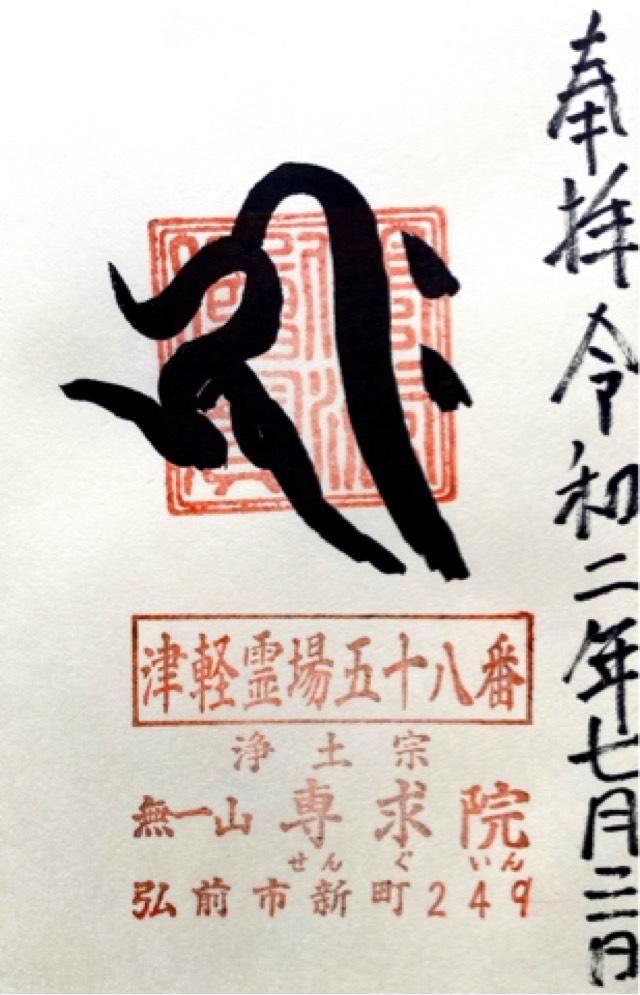 奉拝 令和二年七月三日
𑖮𑖿𑖨𑖱𑖾
津軽霊場五十八番
浄土宗
無一山 専求院
せんぐいん
弘前市新町249